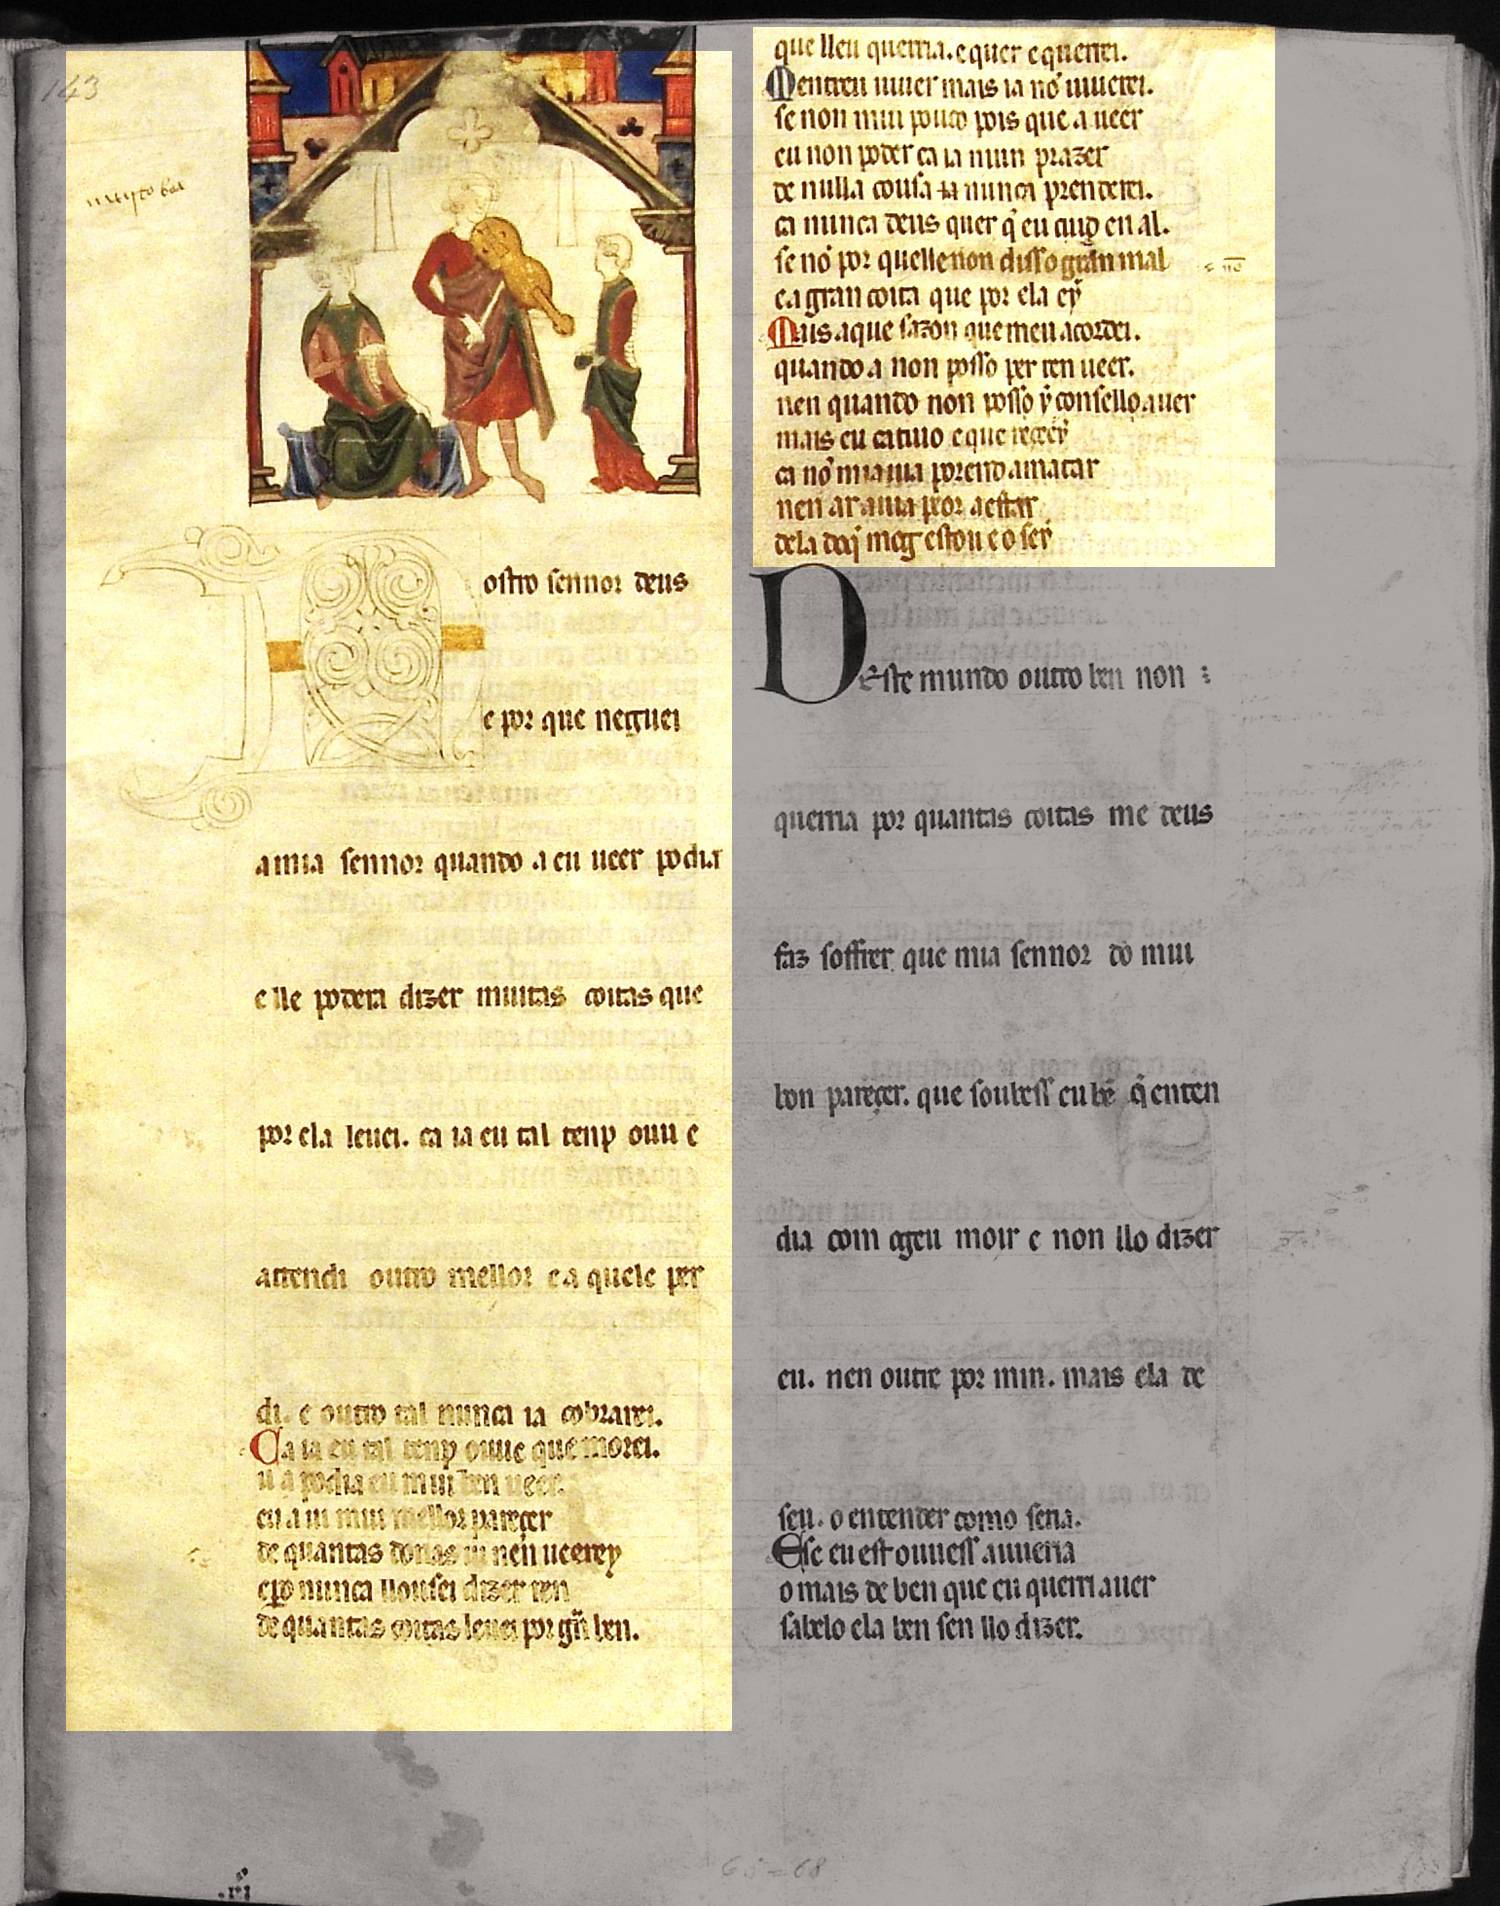 143
ostro sennor deus
e por que neguei
a mia sennor quando a eu ueer podia
e lle podera dizer muitas coitas que
por ela leuei. ca ia eu tal tenp ouu e
attendi outro mellor e a quele per
di. e outro tal nunca ia cobrarei.
Ca ia eu tal tenp ouue que morei.
u a podia eu mui ben ueer.
e u a ui mui mellor pareçer
de quantas donas ui nen ueerey
e ꝑo nunca llousei dizer ren
de quantas coitas leuei por gn̄ ben.
que lleu querria. e quer e querrei.
Mentreu uiuer mais ia nō uiuerei.
se non mui pouco pois que a ueer
eu non poder ca ia niun prazer
de nulla cousa ia nunca prenderei.
ca nunca deus quer q̄ eu cuid en al.
se nō por quelle non diss o gran mal
e a gran coita que por ela ey
Mais a que sazon que meu acordei.
quando a non posso per ren ueer.
nen quando non posso y consello auer
mais eu catiuo e que reçey
ca nō mi a uia por end a matar
nen ar auia peor a estar
dela do q̄ meog estou e o sey
Deste mundo outro ben non
querria por quantas coitas me deus
faz soffrer que mia sennor do mui
bon pareçer. que soubess eu bē q̄ enten
dia com ogeu moir e non llo dizer
eu. nen outre por min. mais ela de
seu. o entender como seria.
E se eu est ouuess auueria
o mais de ben que eu querri auer
sabelo ela ben sen llo dizer.
65-68